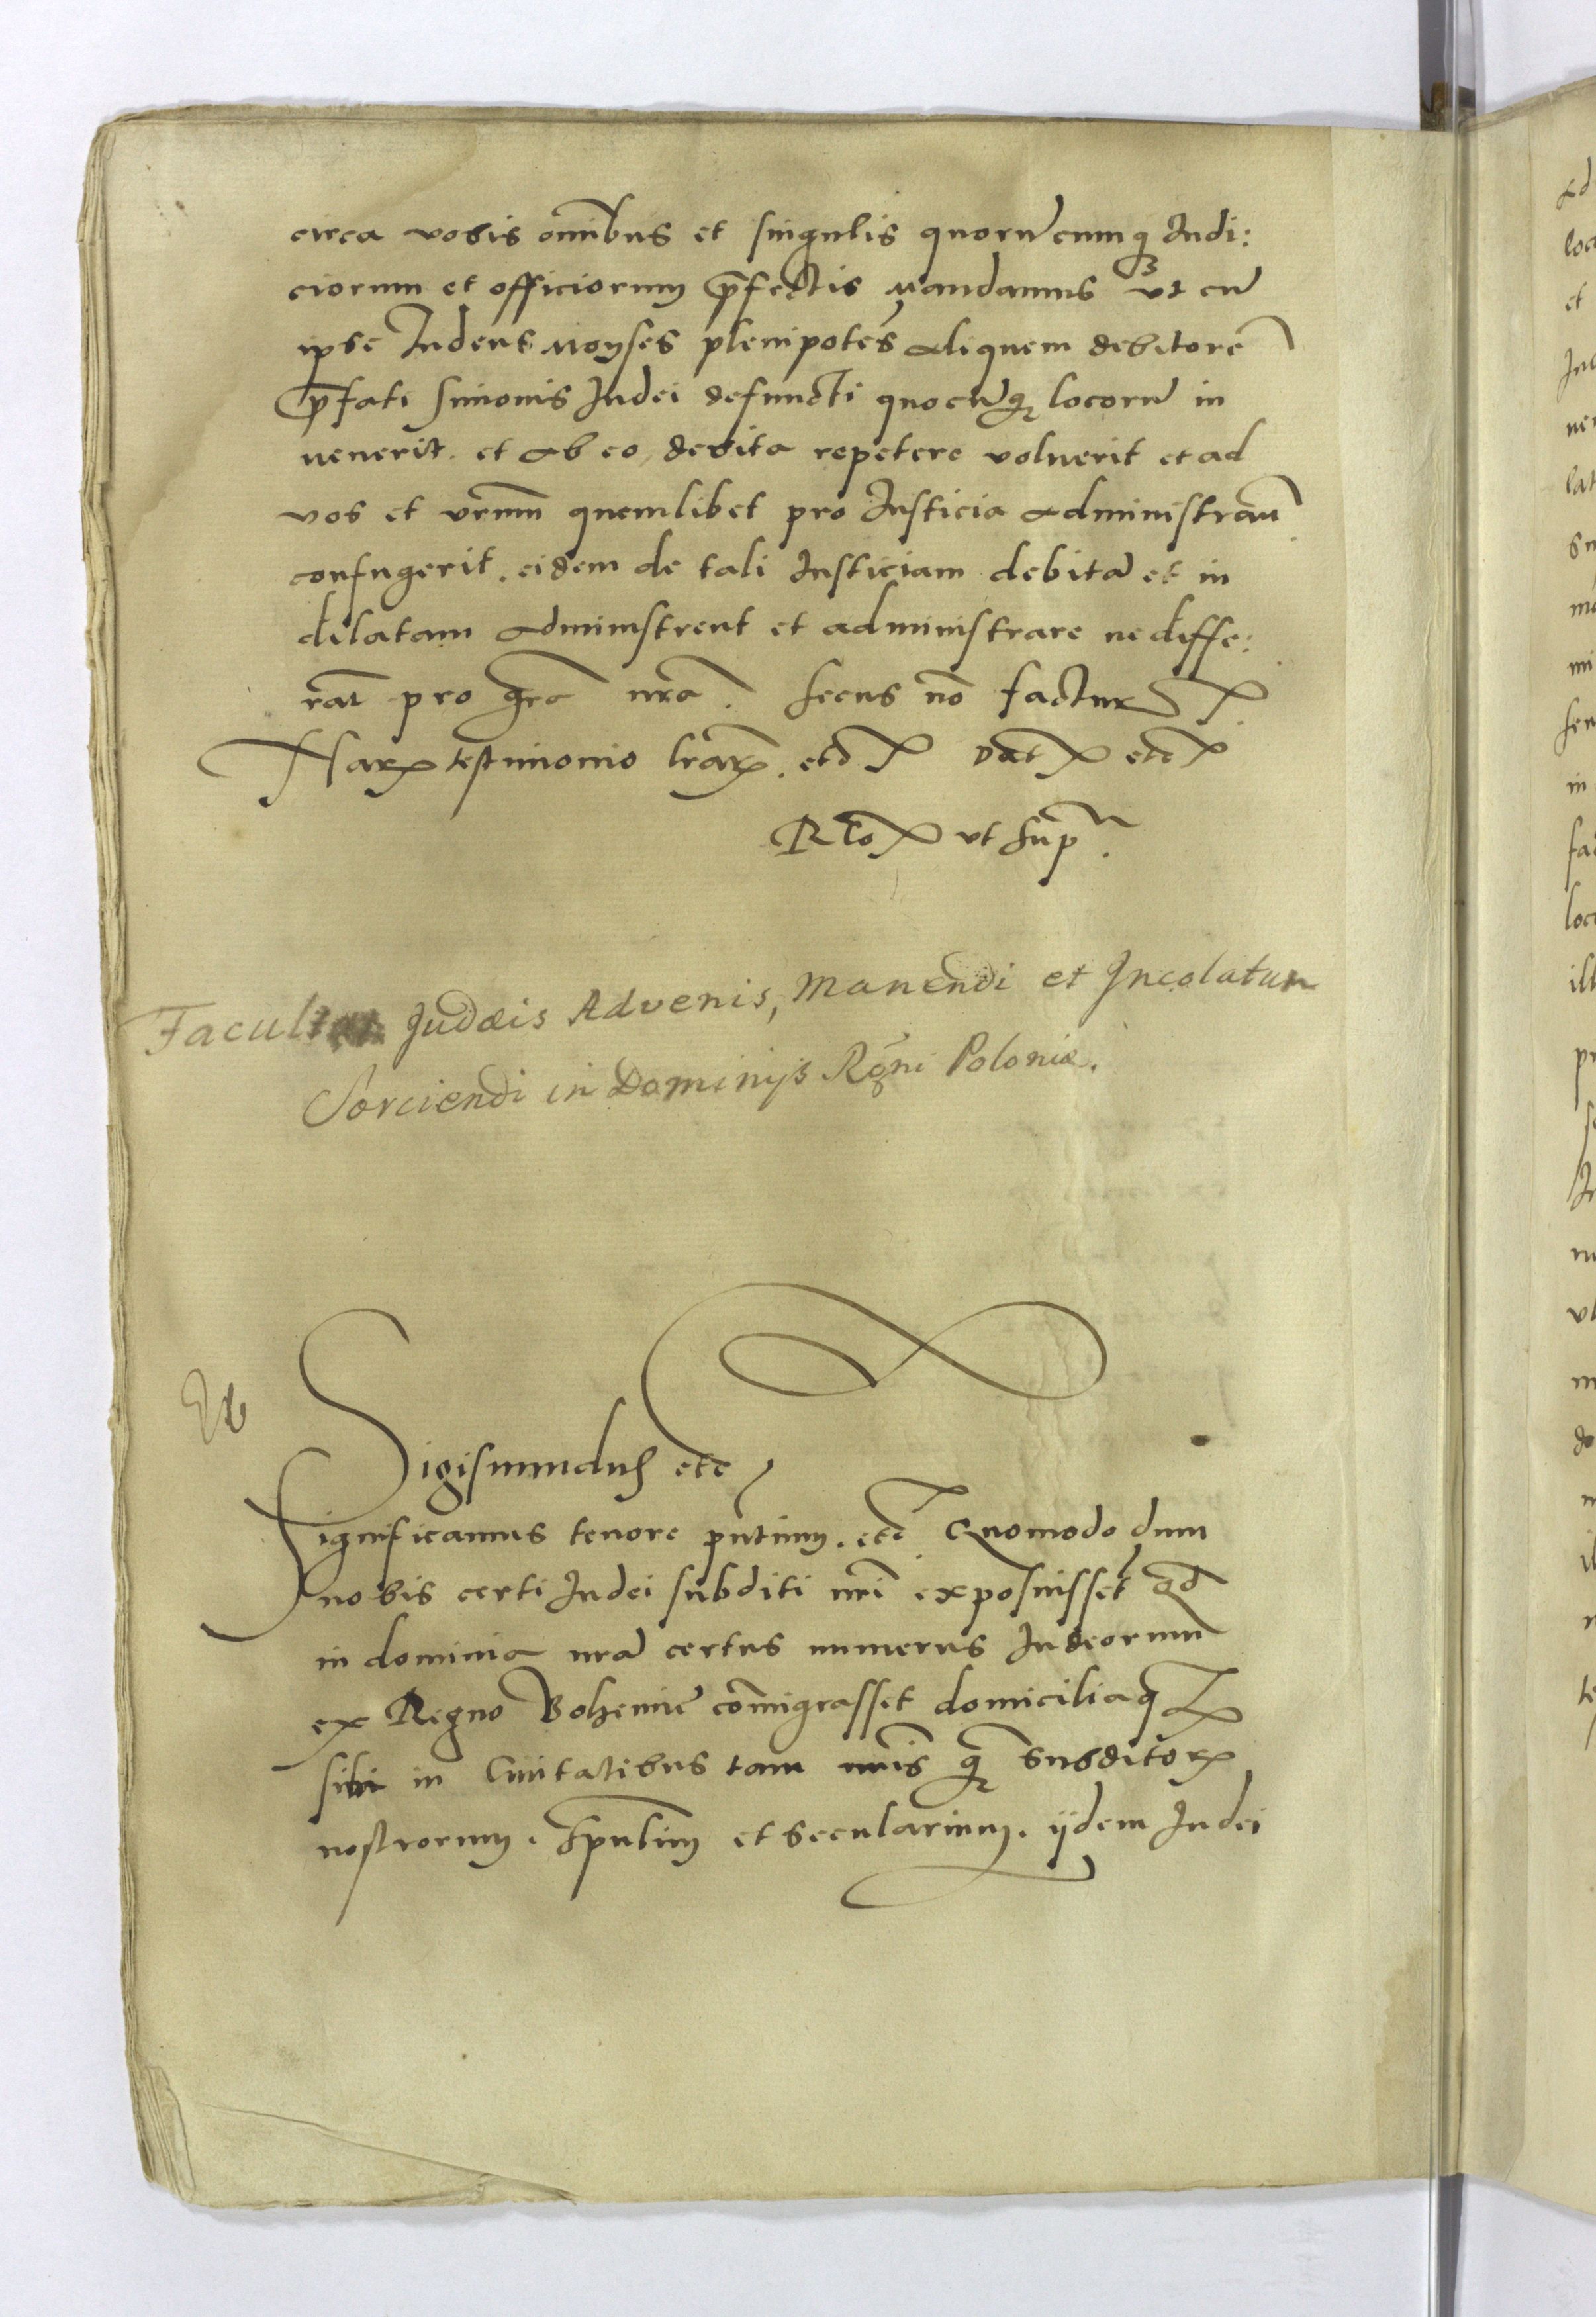 circa vobis om̄ibus et singulis quorūcumqȝ Iudi:
ciorum et officiorum p̄fectis Mandamus vt cū
ipse Iudeus Moyses plenipotēs aliquem debitorē
p̄fati Simonis Iudei defuncti quocūqȝ locorū in
uenerit. et ab eo debita repetere voluerit et ad
vos et vr̄um quemlibet pro Iusticia administran̄
confugerit. eidem de tali Iusticiam debitā et in
dilatam administrent et administrare ne diffe:
rāt pro gr̄a nr̄a. secus nō factur
Harꝝ testimonio lr̄arꝝ. etc Dat etc
Rlo vt supr
Facultas Judæis Advenis, Manendi et Incolatum
Sorciendi in Dominijs Rgni Poloniæ.
Sigismundus etc
Significamus tenore pn̄tium. etc Quomodo dum
nobis certi Iudei subditi nr̄i exposuissēt qd̄
in dominia nr̄a certus numerus Iudeorum
ex Regno Bohemie cōmigrasset domiciliaqȝ
sibi in Ciuitatibus tam nr̄is qȝ Subditorꝝ
nostrorum. sp̄ulium et Secularium. ijdem Iudei